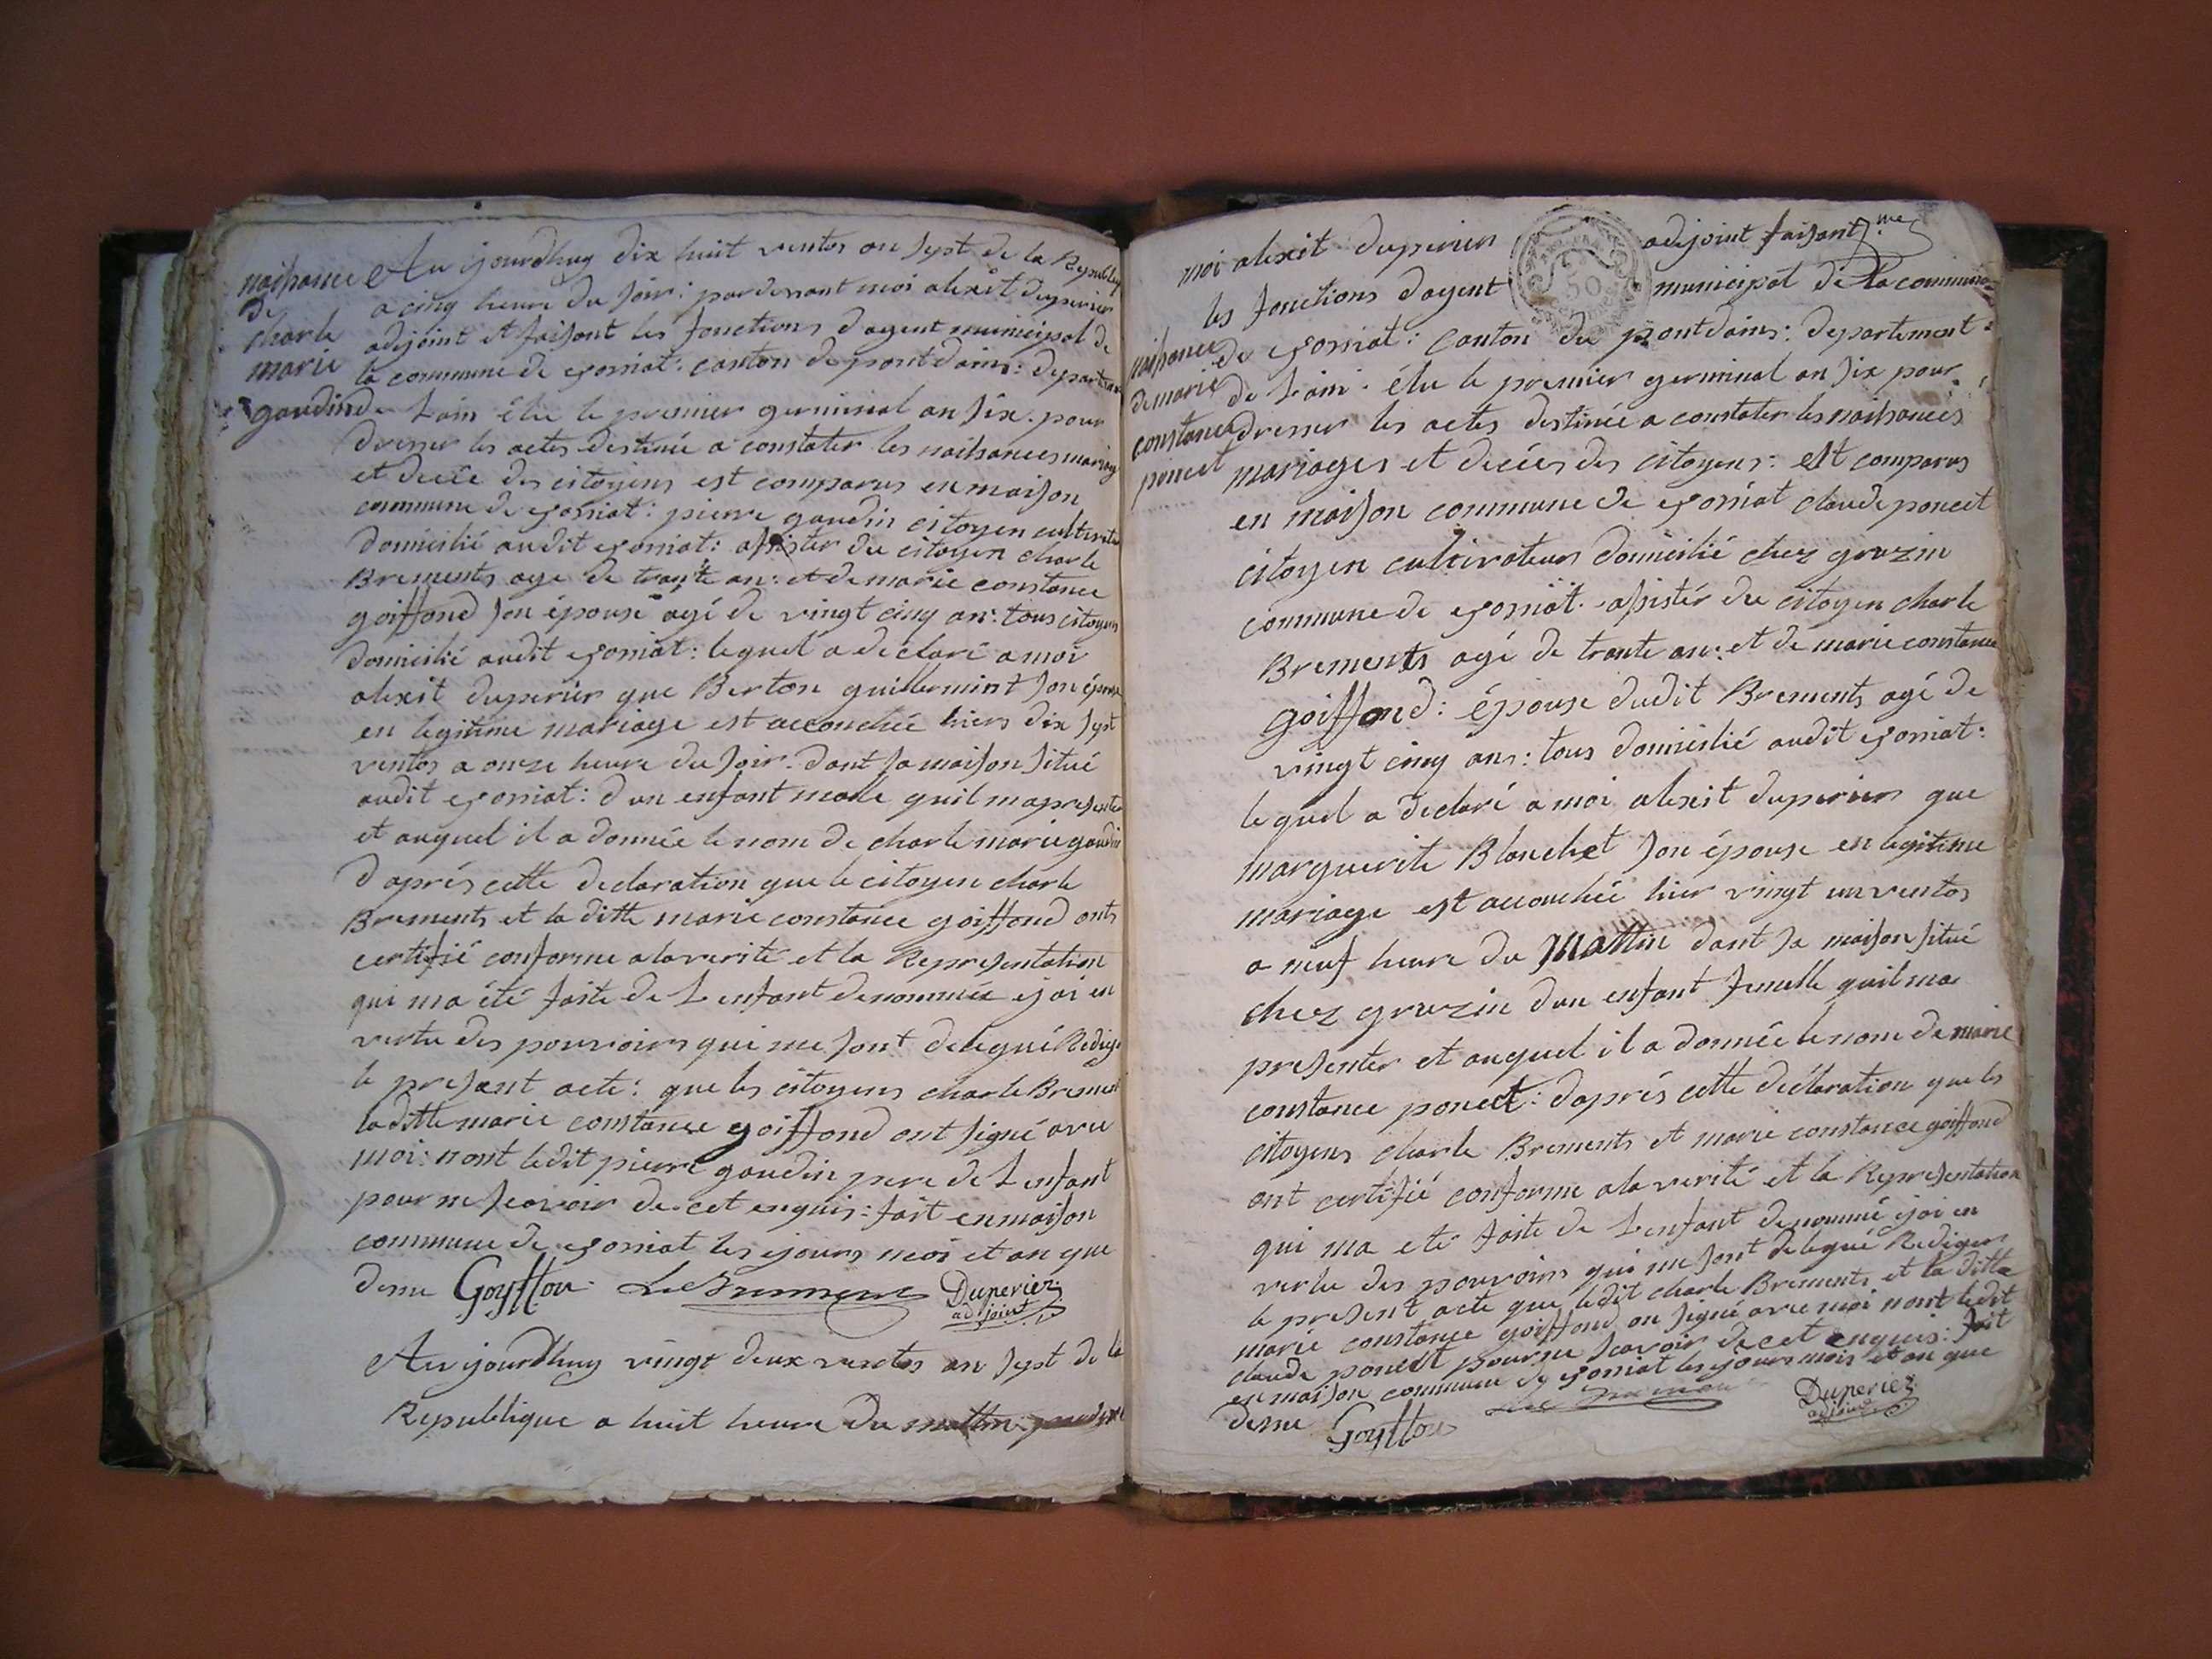 naissance
de
charle
marie
gaudin
Au jourdhuy dix huit ventos an sept de la Republiq
a cinq heure du soir: pardevant moi alexit duperier
adjoint et faisant les fonctions dagent municipal de
la commune de jorniat: canton de pontdains: departem
de Lain élu le premier germinal an six. pour
dresser les actes destinée a constater les naissances mariag
et decée des citoyens est comparus en maison
commune de jorniat: pierre gaudin citoyen cultivate
domicilié audit jorniat: assister du citoyen charle
Brements age de trante an: et de marie constance
goiffond son épouse agé de vingt cinq an: tous citoyens
domicilié audit jorniat: lequel a declaré a moi
alexit duperier que Berton guillermint son épouse
en legitime mariage est accouchée hiers dix sept
ventos a onze heure du soir. dant sa maison situé
audit jorniat: dun enfant male quil mapresenter
et auquel il a donnée le nom de charle marie gaudin
daprés cette declaration que le citoyen charle
Brements et la ditte marie constance goiffond onts
certifié conforme a la verité et la Representation
qui ma été faite de Lenfant denommée ejai en
vertu des pouvoirs qui me sont delegué Redige
le present acte: que les citoyens charle Brement
laditte marie constance goiffond ont signé avec
moi: nont ledit pierre gaudin pere de Lenfant
pour ne scavoir de cet enquis: fait en maison
commune de jorniat les ejours moi et an que
dessu Goyffon LeBremens Duperiez
adjoint
Au jourdhuy vingt deux ventos an sept de la
Republique a huit heure du mattin
moi alexit duperier adjoint faisant
les fonctions dagent municipal de la commune
naissance
de marie
constance
poncet
de jorniat: canton du pontdains: departement
de Lain. élu le premier germinal an six pour
dresser les actes destinée a constater les naissances
mariages et decées des citoyens: est comparus
en maison commune de jorniat claude poncet
citoyen cultivateur domicilié chez gruzin
commune de jorniat. assistér du citoyen charle
Brements agé de trante an: et de marie constance
goiffond: épouse dudit Brements agé de
vingt cinq ans: tous domicilié audit jorniat:
lequel a declaré a moi alexit duperier que
marguerite Blanchet son épouse en legitime
mariage est accouchée hier vingt un ventos
a neuf heure du Mattin dant sa maison situé
chez gruzin dun enfant femelle quil ma
presenter et auquel il a donnée le nom de marie
constance poncet: daprés cette declaration que les
citoyens charle Brements et marie constance goiffond
ont certifié conforme a la verité et la Representation
qui ma eté faite de Lenfant denommé ejai en
vertu des pouvoirs qui me sont delegué Rediger
le present acte que ledit charle Brements et la ditte
marie constance goiffond on signé avec moi nont ledit
claude poncet pour ne scavoir de cet enquis: fait
en maison commune de jorniat les ejours mois et an que
dessu Goyffon Duperiez
adjoint